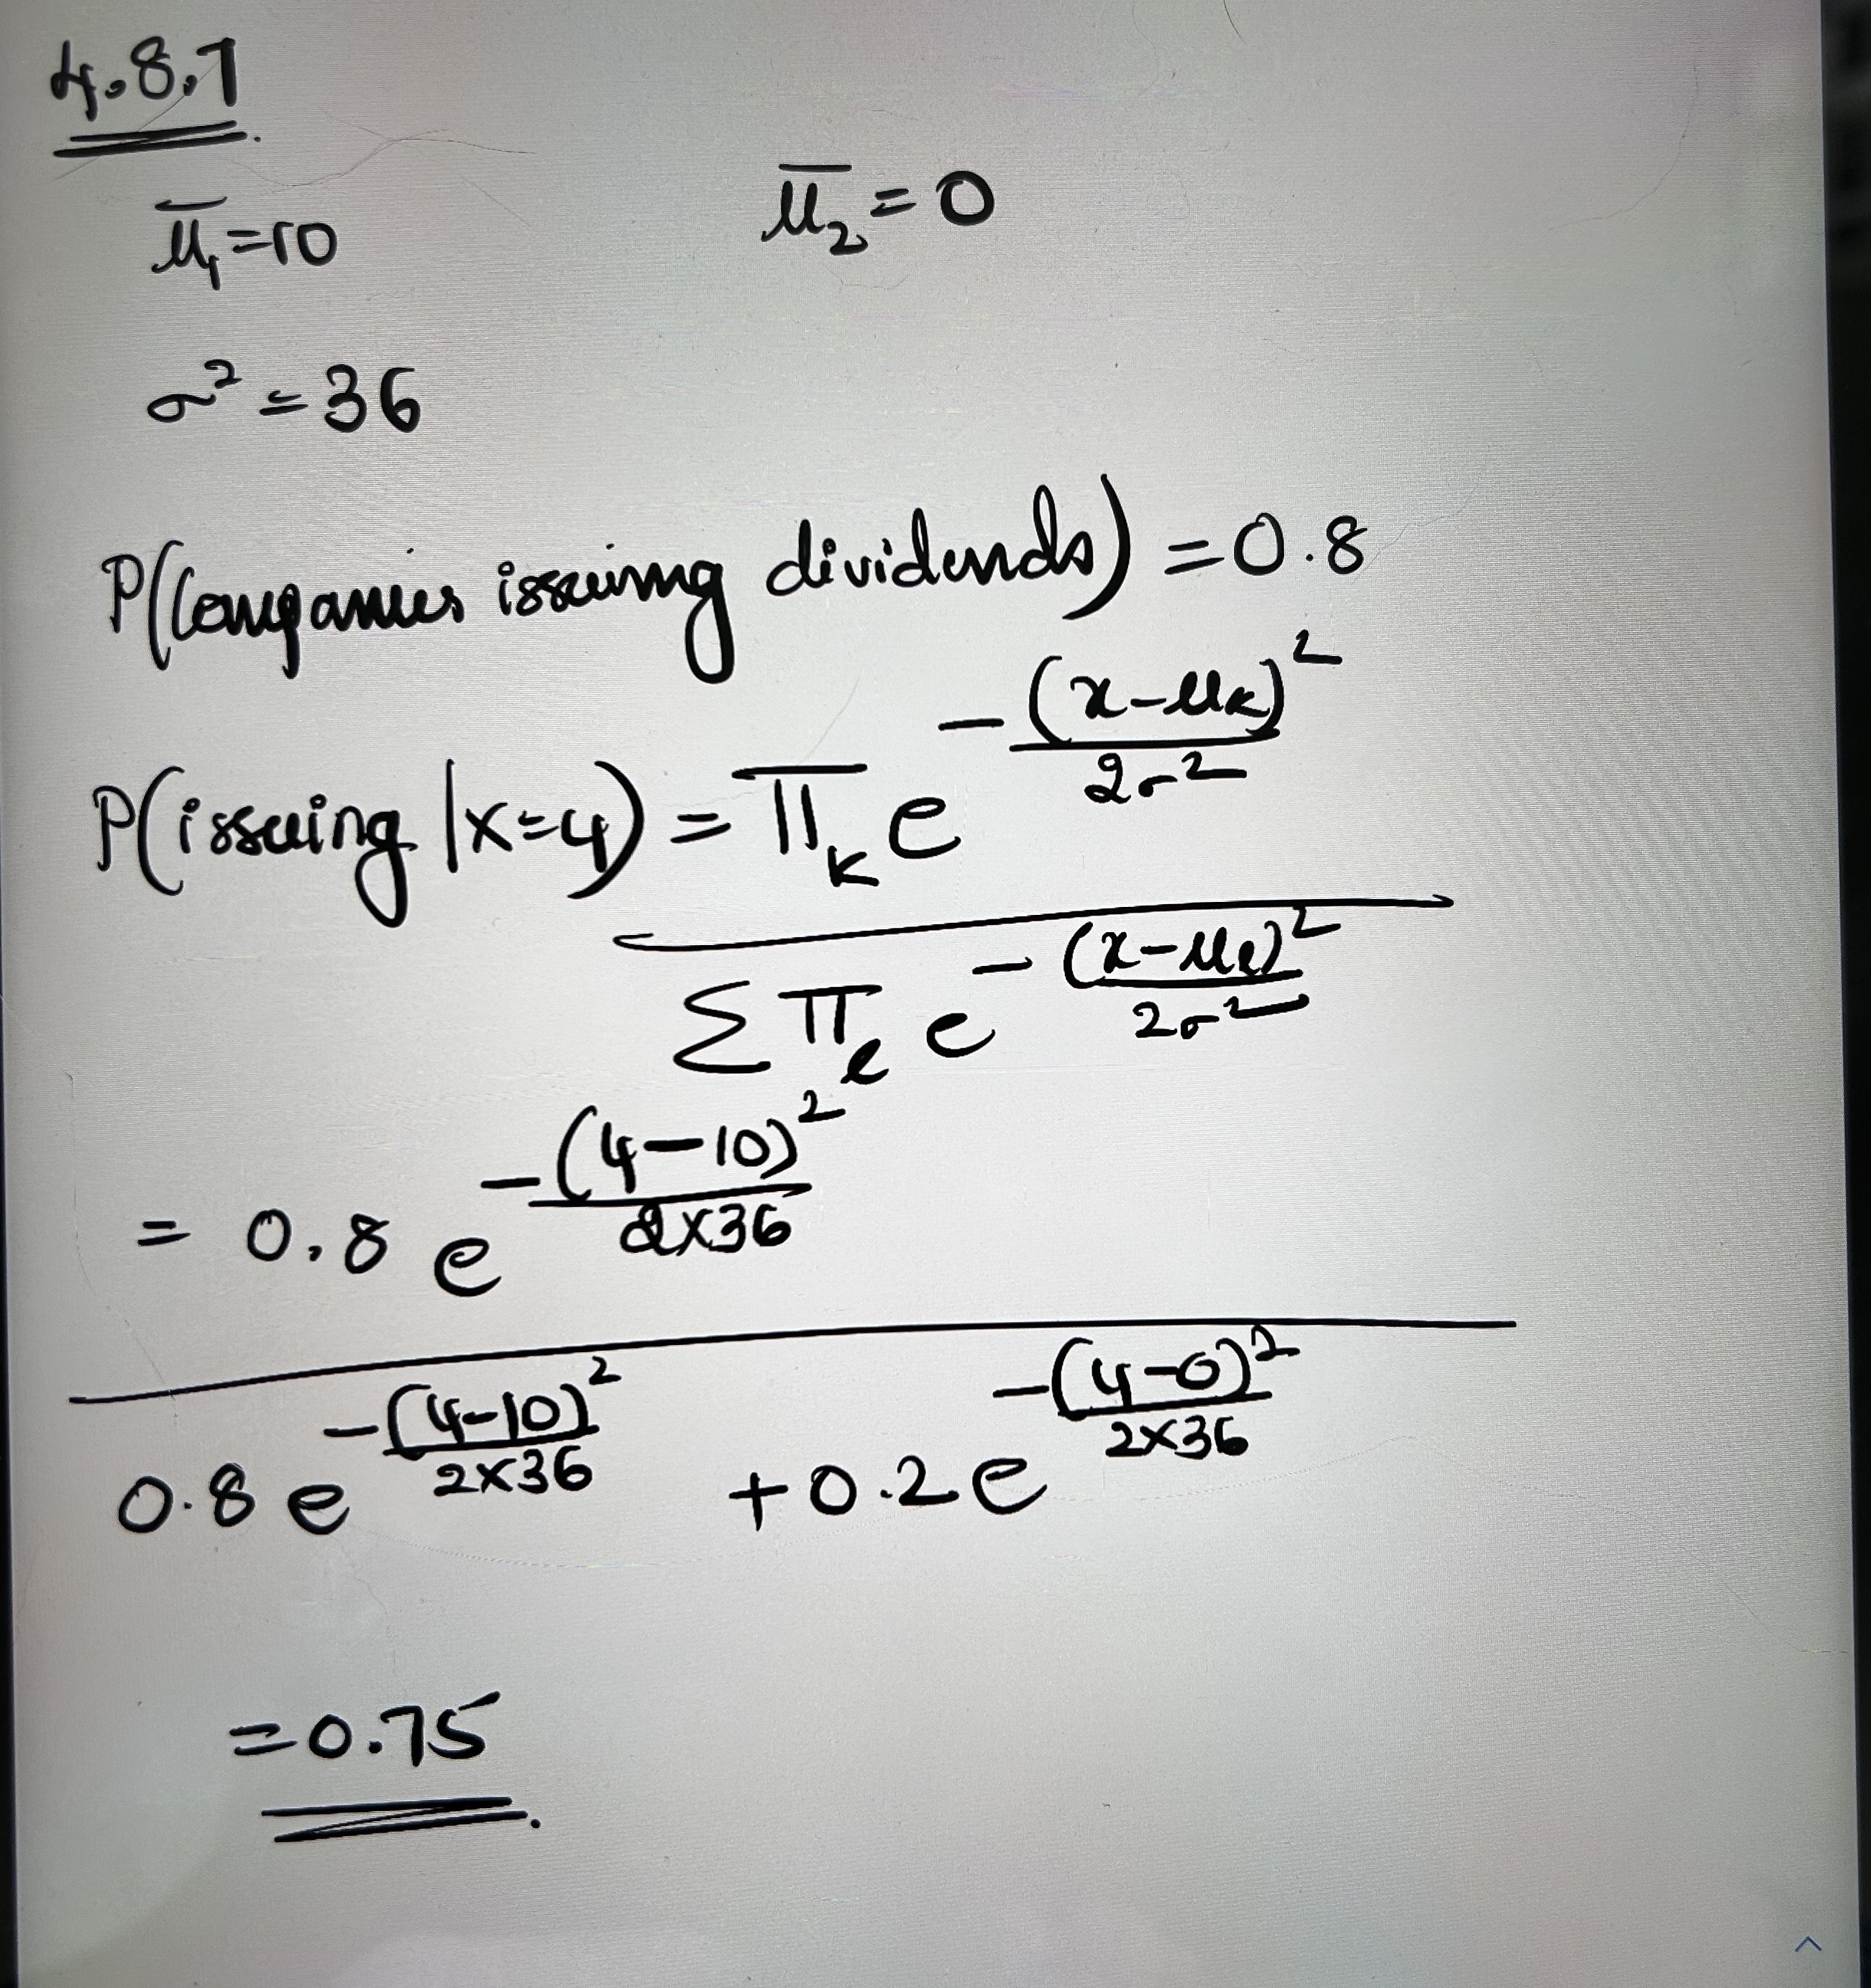 4.8.7
μ̅₁=10 μ̅₂=0
σ²=36
P(Companies issuing dividends) = 0.8
P(issuing |x=4) = π_k e^(-(x-μ_k)²/2σ²)
Σ π_l e^(-(x-μ_l)²/2σ²)
= 0.8 e^(-(4-10)²/2x36)
0.8 e^(-(4-10)²/2x36) + 0.2 e^(-(4-0)²/2x36)
=0.75